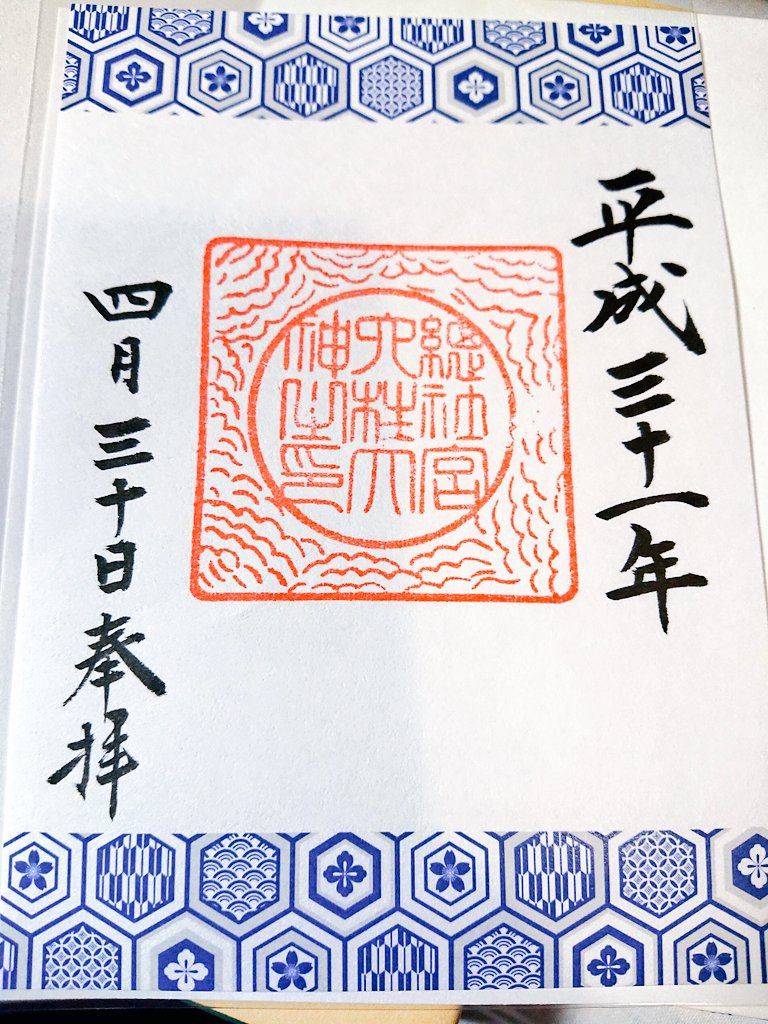 平成三十一年
總社宮
六柱大
神之印
四月三十日奉拝